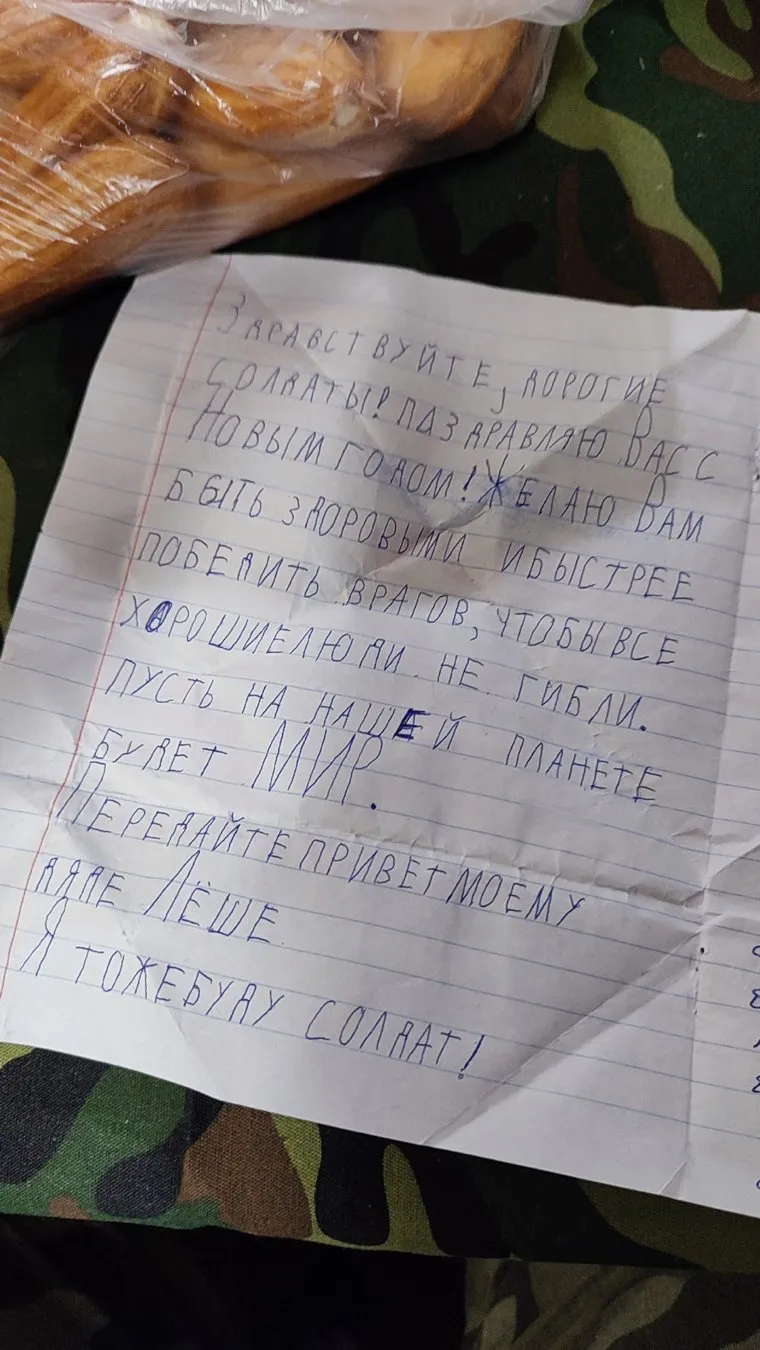 ЗДРАВСТВУЙТЕ, ДОРОГИЕ
СОЛДАТЫ! ПАЗДРАВЛЯЮ ВАС С
НОВЫМ ГОДОМ! ЖЕЛАЮ ВАМ
БЫТЬ ЗДОРОВЫМИ ИБЫСТРЕЕ
ПОБЕДИТЬ ВРАГОВ, ЧТОБЫ ВСЕ
ХОРОШИЕЛЮДИ НЕ ГИБЛИ.
ПУСТЬ НА НАШЕЙ ПЛАНЕТЕ
БУДЕТ МИР.
ПЕРЕДАЙТЕ ПРИВЕТ МОЕМУ
ДЯДЕ ЛЁШЕ.
Я ТОЖЕБУДУ СОЛДАТ!